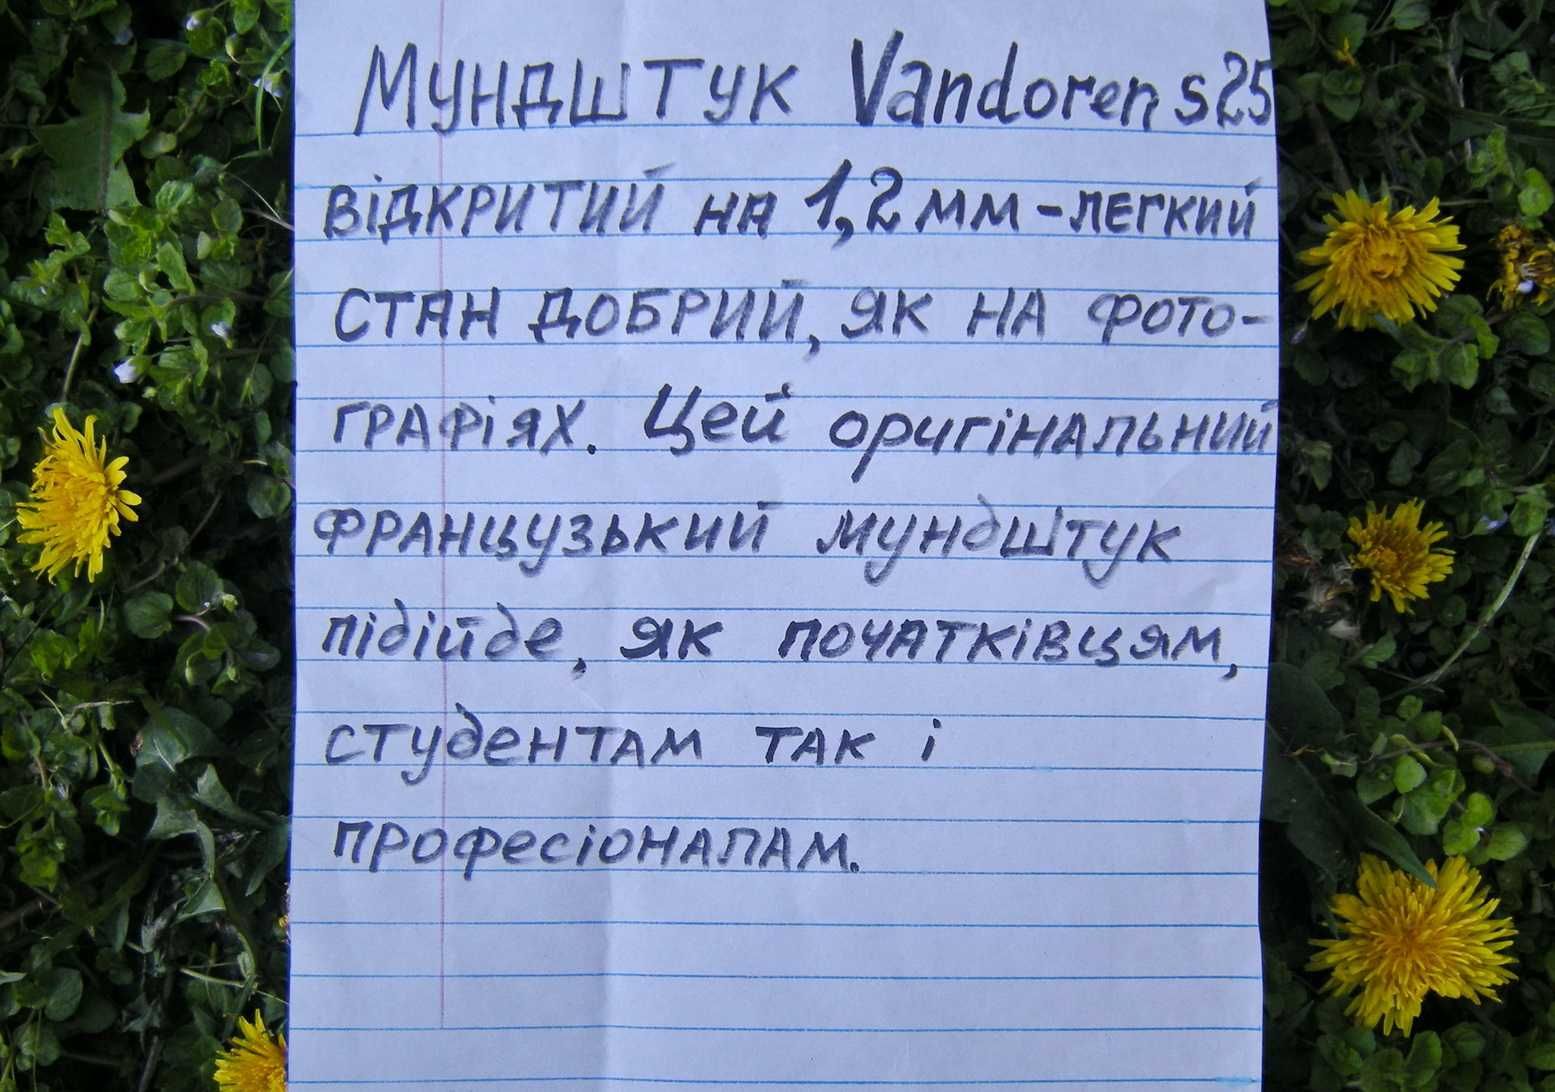 Мундштук Vandoren s25
відкритий на 1,2мм-легкий
стан добрий, як на фото-
графіях. Цей оригінальний
французький мундштук
підійде, як початківцям,
студентам так і
професіоналам.